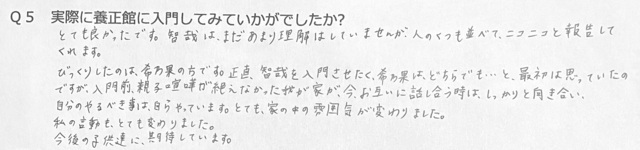 Q５ 実際に養正館に入門してみていかがでしたか?
とても良かったです。智哉は、まだあまり理解はしていませんが、人のくつも並べて、ニコニコと報告して
くれます。
びっくりしたのは、希乃果の方です。正直、智哉を入門させたく、希乃果は、どちらでも…と、最初は思っていたの
ですが、入門前、親子喧嘩が絶えなかった我が家が、今、お互いに話し合う時は、しっかりと向き合い、
自分のやるべき事は、自らやっています。とても、家の中の雰囲気が変わりました。
私の言動も、とても変わりました。
今後の子供達に、期待しています。